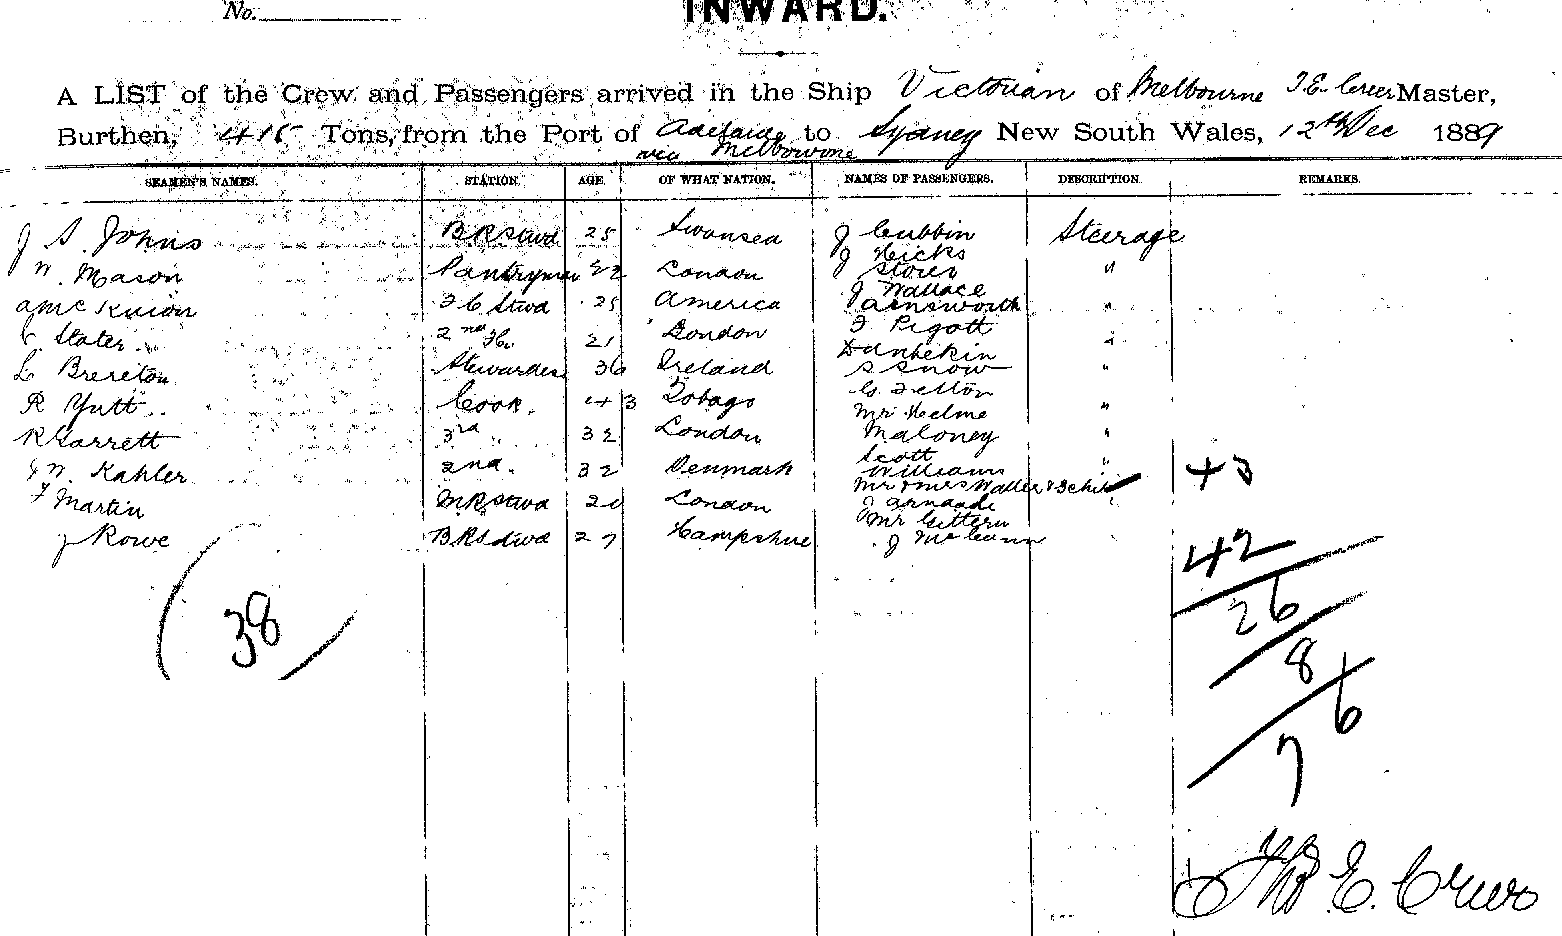 No.
INWARD.
A LIST of the Crew and Passengers arrived in the Ship Victorian of Melbourne T.E. Creer Master,
Burthen, 415 Tons, from the Port of Adelaide to Sydney New South Wales, 12th Dec 1889
via Melbourne
SEAMEN'S NAMES. STATION. AGE. OF WHAT NATION. NAMES OF PASSENGERS. DESCRIPTION. REMARKS.
J S. Johns B R Stwd 25 Swansea J Cubbin Steerage
J Hicks
W. Mason Pantryman 22 London Storer "
J Wallace
A Mc Kuion F C Stwd 25 America Ainsworth "
Slater 2nd 21 London J Pigott "
Dunbekin
L Brereton Stewardess 36 Ireland S Snow "
G. Felton
R Yutt Cook. 43 Tobago Mr Helme "
R Garrett 3rd " 32 London Maloney "
Scott
J W. Kahler 2nd. 32 Denmark Williams " +3
Mr & Mrs Waller & 3 chil
F Martin M R Stwd 20 London J Arnaade
Mr Gittern
J Rowe B R Stwd 27 Hampshire J McCunn
42
38
26
8
6
7
E. Creer